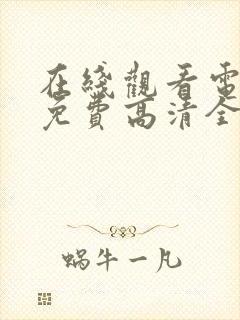 在綫觀看電
免費高清全
蝸牛一凡